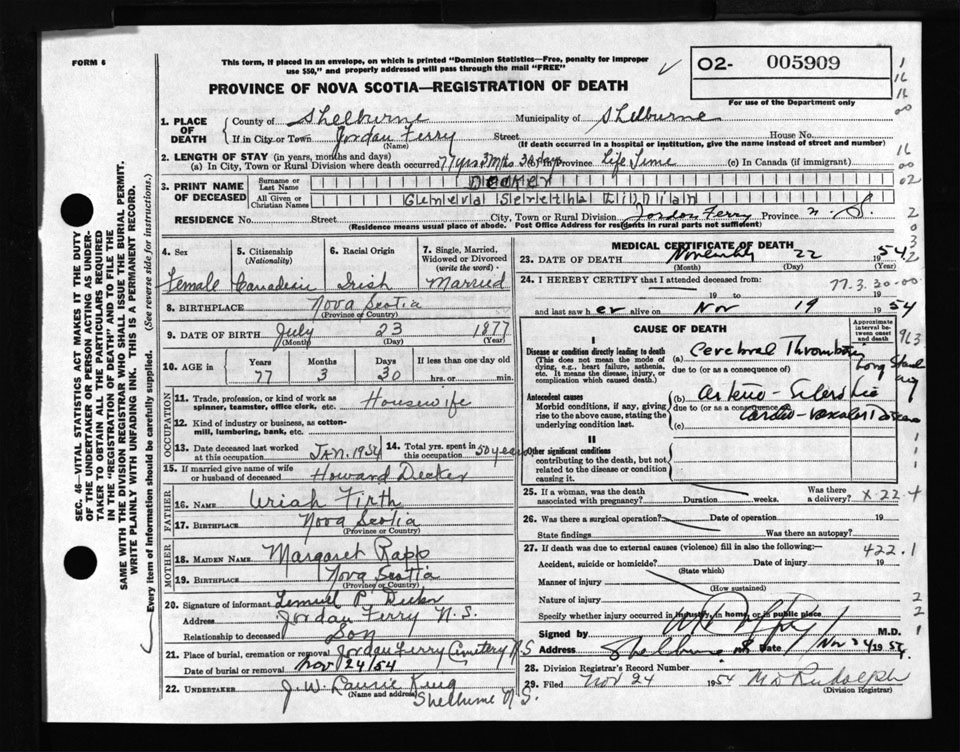 FORM 6
This form, if placed in an envelope, on which is printed "Dominion Statistics—Free, penalty for improper
use $50," and properly addressed will pass through the mail "FREE"
02- 005909
For use of the Department only
PROVINCE OF NOVA SCOTIA—REGISTRATION OF DEATH
1. PLACE OF DEATH
County of Shelburne Municipality of Shelburne
If in City or Town Jordan Ferry Street House No.
(Name) (If death occurred in a hospital or institution, give the name instead of street and number)
2. LENGTH OF STAY (in years, months and days)
(a) In City, Town or Rural Division where death occurred 77 yrs 3 Mths 30 days Province Life Time (c) In Canada (if immigrant)
3. PRINT NAME OF DECEASED
Surname or Last Name Decker
All Given or Christian Names Geneva Seretha
RESIDENCE No. Street City, Town or Rural Division Jordon Ferry Province N. S.
(Residence means usual place of abode. Post Office Address for residents in rural parts not sufficient)
4. Sex Female
5. Citizenship (Nationality) Canadian
6. Racial Origin Irish
7. Single, Married, Widowed or Divorced (write the word) - Married
8. BIRTHPLACE Nova Scotia
(Province or Country)
9. DATE OF BIRTH July 23 1877
(Month) (Day) (Year)
10. AGE in Years 77 Months 3 Days 30 If less than one day old hrs. or min.
OCCUPATION
11. Trade, profession, or kind of work as spinner, teamster, office clerk, etc. Housewife
12. Kind of industry or business, as cotton-mill, lumbering, bank, etc.
13. Date deceased last worked at this occupation JAN. 1954
14. Total yrs. spent in this occupation 50 years
15. If married give name of wife or husband of deceased Howard Decker
FATHER
16. NAME Uriah Firth
17. BIRTHPLACE Nova Scotia
(Province or Country)
MOTHER
18. MAIDEN NAME Margaret Rapp
19. BIRTHPLACE Nova Scotia
(Province or Country)
20. Signature of informant Lemuel P. Decker
Address Jordan Ferry N. S.
Relationship to deceased Son
21. Place of burial, cremation or removal Jordan Ferry Cemetery N S
Date of burial or removal Nov 24/54
22. UNDERTAKER J. W. Laurie King
(Name and address) Shelburne N. S.
MEDICAL CERTIFICATE OF DEATH
23. DATE OF DEATH November 22 1954
(Month) (Day) (Year)
24. I HEREBY CERTIFY that I attended deceased from: 77. 3. 30-00
19 to 19
and last saw her alive on Nov 19 1954
CAUSE OF DEATH
Approximate interval between onset and death
I
Disease or condition directly leading to death
(This does not mean the mode of dying, e.g., heart failure, asthenia, etc. It means the disease, injury, or complication which caused death.)
(a) Cerebral Thrombosis Long Standing
due to (or as a consequence of)
Antecedent causes
Morbid conditions, if any, giving rise to the above cause, stating the underlying condition last.
(b) Arterio-Sclerotic
due to (or as a consequence of)
(c) Cardio-vascular Disease
II
Other significant conditions
contributing to the death, but not related to the disease or condition causing it.
25. If a woman, was the death associated with pregnancy? Duration weeks. Was there a delivery? X-22-4
26. Was there a surgical operation? Date of operation 19
State findings Was there an autopsy?
27. If death was due to external causes (violence) fill in also the following:— 422.1
Accident, suicide or homicide? Date of injury 19
(State which)
Manner of injury
(How sustained)
Nature of injury
Specify whether injury occurred in industry, in home, or in public place
Signed by M.D.
Address Shelburne NS Date Nov 24 1954
28. Division Registrar's Record Number
29. Filed Nov 24 1954 M D Rudolph
(Division Registrar)
SEC. 46—VITAL STATISTICS ACT MAKES IT THE DUTY
OF THE UNDERTAKER OR PERSON ACTING AS UNDER-
TAKER TO OBTAIN ALL THE PARTICULARS REQUIRED
IN THE "REGISTRATION OF DEATH" AND TO FILE THE
SAME WITH THE DIVISION REGISTRAR WHO SHALL ISSUE THE BURIAL PERMIT.
WRITE PLAINLY WITH UNFADING INK. THIS IS A PERMANENT RECORD.
Every item of information should be carefully supplied. (See reverse side for instructions.)